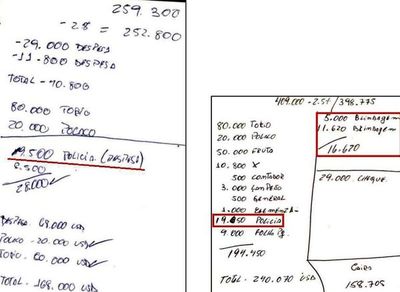 259.300
-2.8 = 252.800
-29.000 DESPESA
-11.800 DESPESA
TOTAL -40.800
80.000 TOTIO
20.000 POLOCO
19.500 POLICIA (DESPESA)
8.500
28000
DESPESA 69.000 USD
POLOCO - 20.000 USD
TOTIO. 80.000 USD
TOTAL. 169.000 USD
409.000 - 2.5% / 398.775
80.000 TOTIO
20.000 POLACO
50.000 FRUTA
10.800 X
500 CONTADOR
3.000
500 GENERAL
1.000
19.650 POLICIA
9.000
194.450
TOTAL. 240.070 USD
5.000 Blindagem
11.620 Blindagem
16.620
29.000 CHEQUE.
Caixa
158.705